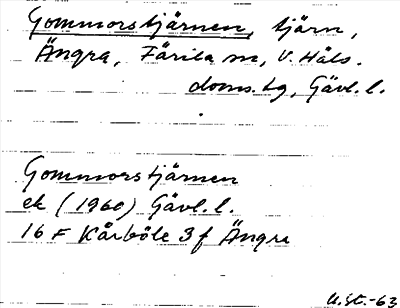 Gommorstjärnen, tjärn,
Ängra, Färila sn, V. Häls.
doms. tg, Gävl. l.
Gommorstjärnen
ek (1960) Gävl. l.
16 F Kårböle 3f Ängra
U. St. -63